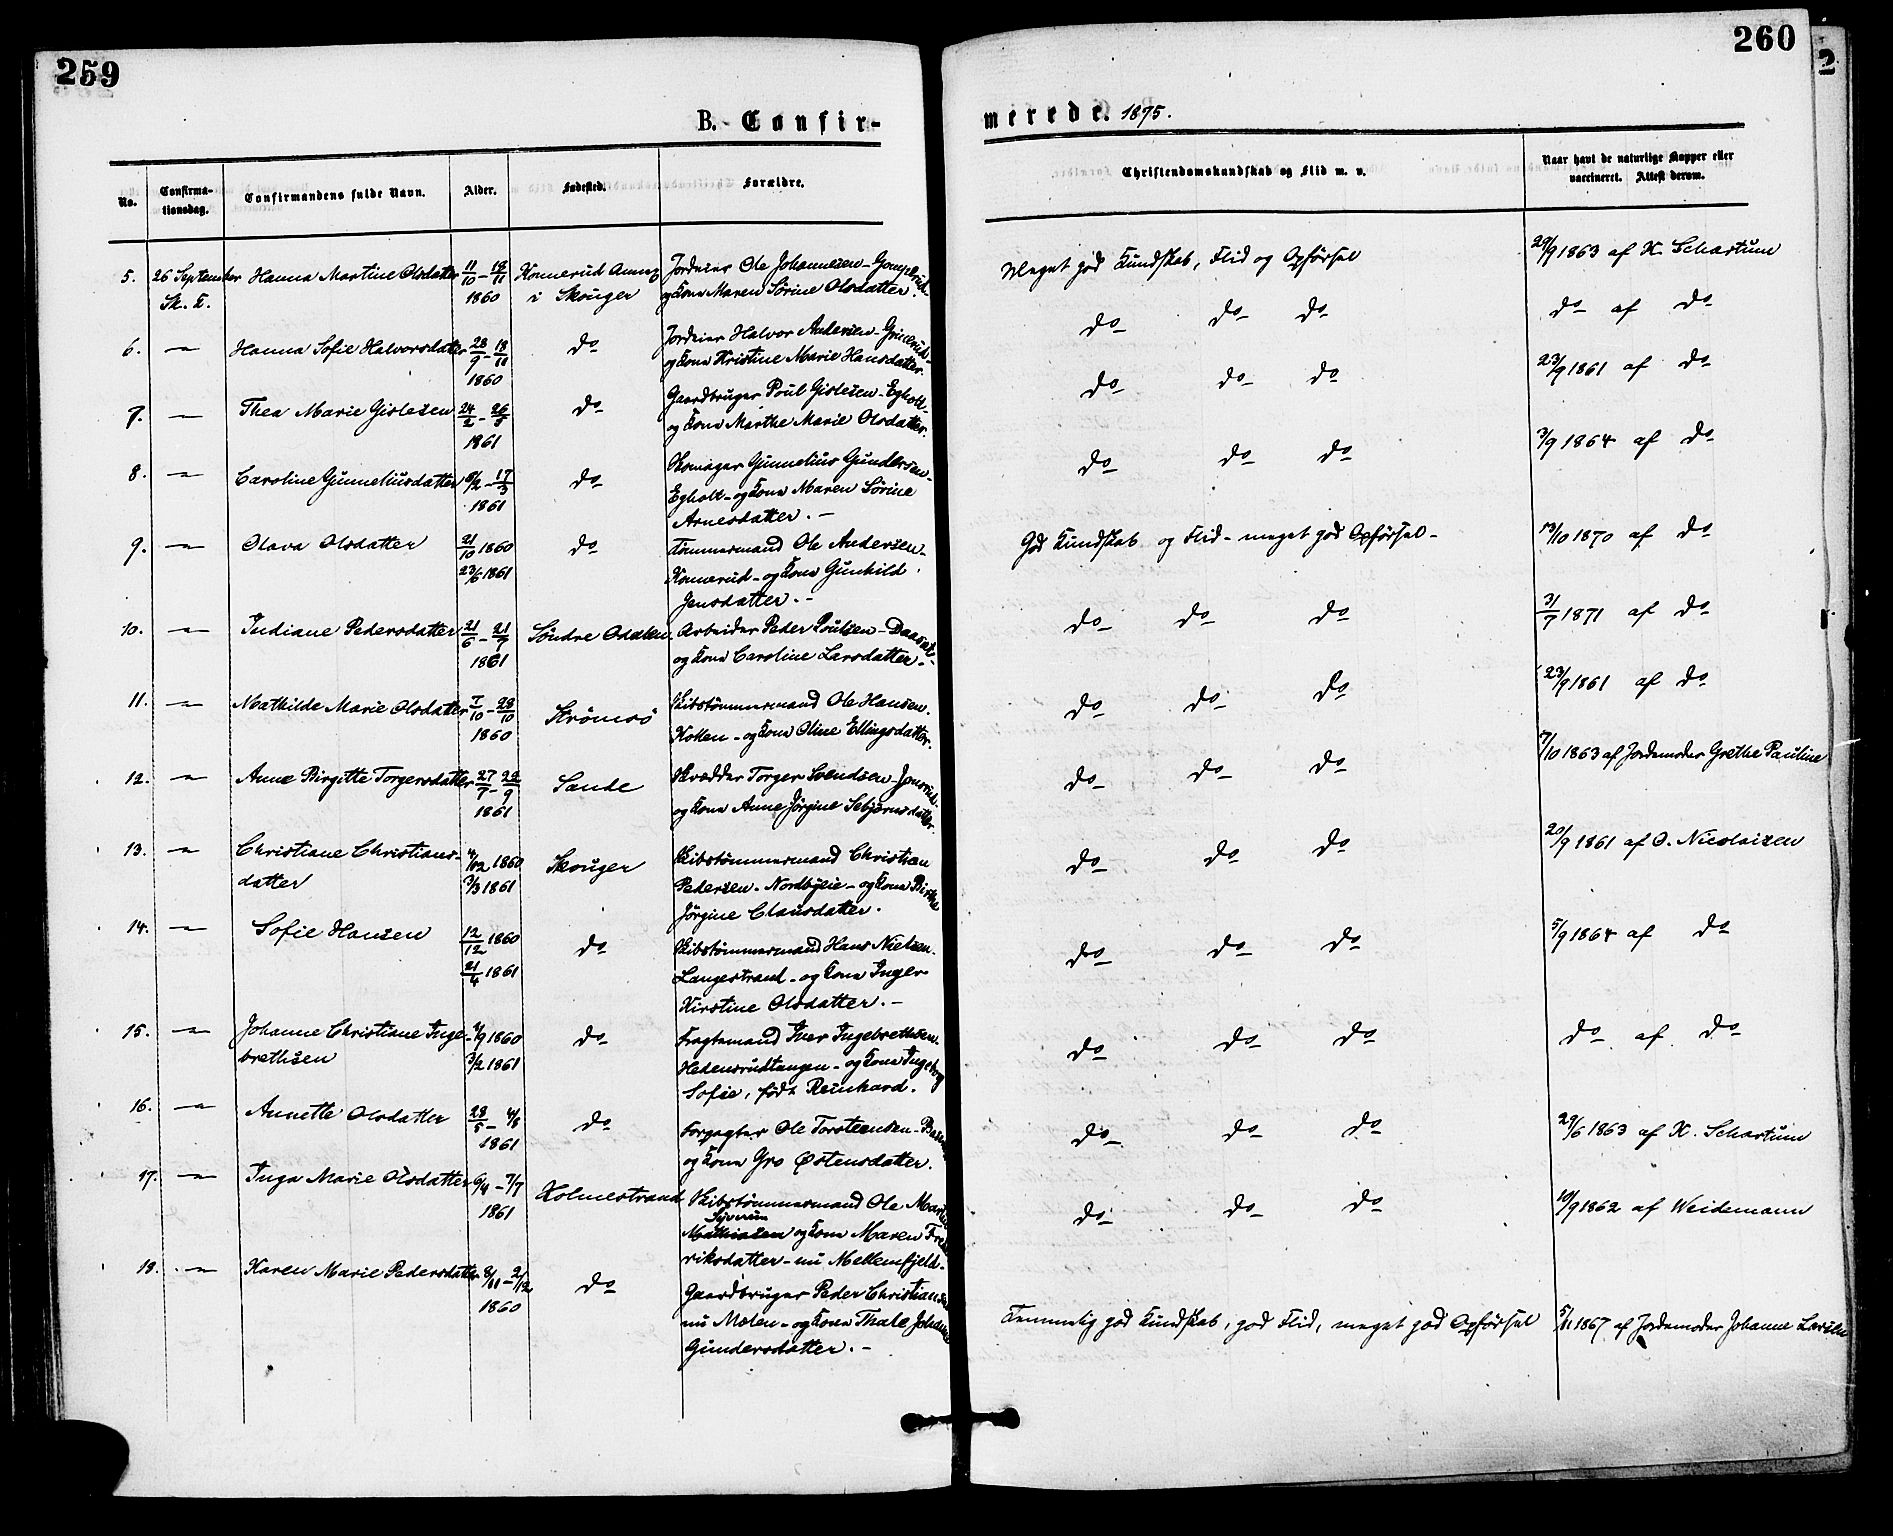 259
B. Confir-
No.
Confirma-
tionsdag.
Confirmandens fulde Navn.
Alder.
Fødested.
Forældre.
5. 26 September
Sk. K.
Hanna Martine Olsdatter
11/10 - 18/11
1860
Konnerud Annex
i Skouger
Jordeier Ole Johannesen -
og Kone Maren Sørine Olsdatter.
6. — Hanna Sofie Halvorsdatter
28/9 - 18/11
1860
do
Jordeier Halvor Andersen -
og Kone Kristine Marie Hansdatter.
7. — Thea Marie Gislesen
24/2 - 26/5
1861
do
Gaardbruger Poul Gislesen - Egholt -
og Kone Marthe Marie Olsdatter.
8. — Caroline Gunneliusdatter
9/2 - 17/3
1861
do
Skomager Gunnelius Gundersen -
Egholt - og Kone Maren Sørine
Arnesdatter. -
9. — Olava Olsdatter
21/10 1860
23/6 1861
do
Tømmermand Ole Andersen -
Konnerud - og Kone Gunhild
Jensdatter. -
10. — Indiane Pedersdatter
21/6 - 21/7
1861
Søndre Odalen
Arbeider Peder Poulsen -
og Kone Caroline Larsdatter -
11. — Mathilde Marie Olsdatter
7/10 - 28/10
1860
Strømsø
Skibstømmermand Ole Hansen -
Kolken - og Kone Oline Ellingsdatter.
12. — Anne Birgitte Torgersdatter
27/7 - 22/9
1861
Sande
Skrædder Torger Svendsen
og Kone Anne Jørgine Sebjørnsdatter.
13. — Christiane Christians-
datter
4/12 1860
3/3 1861
Skouger
Skibstømmermand Christian
Pedersen - Nordbyeie - og Kone Birthe
Jørgine Clausdatter.
14. — Sofie Hansen
12/12 1860
21/4 1861
do
Skibstømmermand Hans Nielsen -
Langestrand - og Kone Inger
Kirstine Olsdatter. -
15. — Johanne Christiane Inge-
brethsen
/9 1860
3/2 1861
do
Fragtemand Iver Ingebrethsen -
Hedensrudtangen - og Kone Ingeborg
Sofie, født Reinhard.
16. — Annette Olsdatter
28/5 - 4/8
1861
do
Forpagter Ole Torstensen -
og Kone Gro Østensdatter.
17. — Inga Marie Olsdatter
6/4 - 7/7
1861
Holmestrand
Skibstømmermand Ole
Syversen
Mathiasen og Kone Maren Fred-
riksdatter - nu Mellemfjeld -
18. — Karen Marie Pedersdatter
8/11 - 2/12
1860
do
Gaardbruger Peder Christiansen
nu Mølen - og Kone Thale Johanne
Gundersdatter. -
260
2
merede. 1875.
Christendomskundskab og Flid m. v.
Naar havt de naturlige Kopper eller
vaccineret. Attest derom.
Meget god Kundskab, Flid og Opførsel
29/9 1863 af K. Schartum
do do do
do af do
do do do
23/9 1861 af do
do do do
3/9 1864 af do
God Kundskab og Flid - meget god Opførsel -
13/10 1870 af do
do do do
31/7 1871 af do
do do do
23/9 1861 af do
do do do
7/10 1863 af Jordemoder Grethe Pauline
do do do
20/9 1861 af O. Nicolaisen
do do do
5/9 1864 af do
do do do
do af do
do do do
29/6 1863 af K. Schartum
do do do
19/9 1862 af Weidemann
Temmelig god Kundskab, god Flid, meget god Opførsel
5/11 1867 af Jordemoder Johanne Larsen